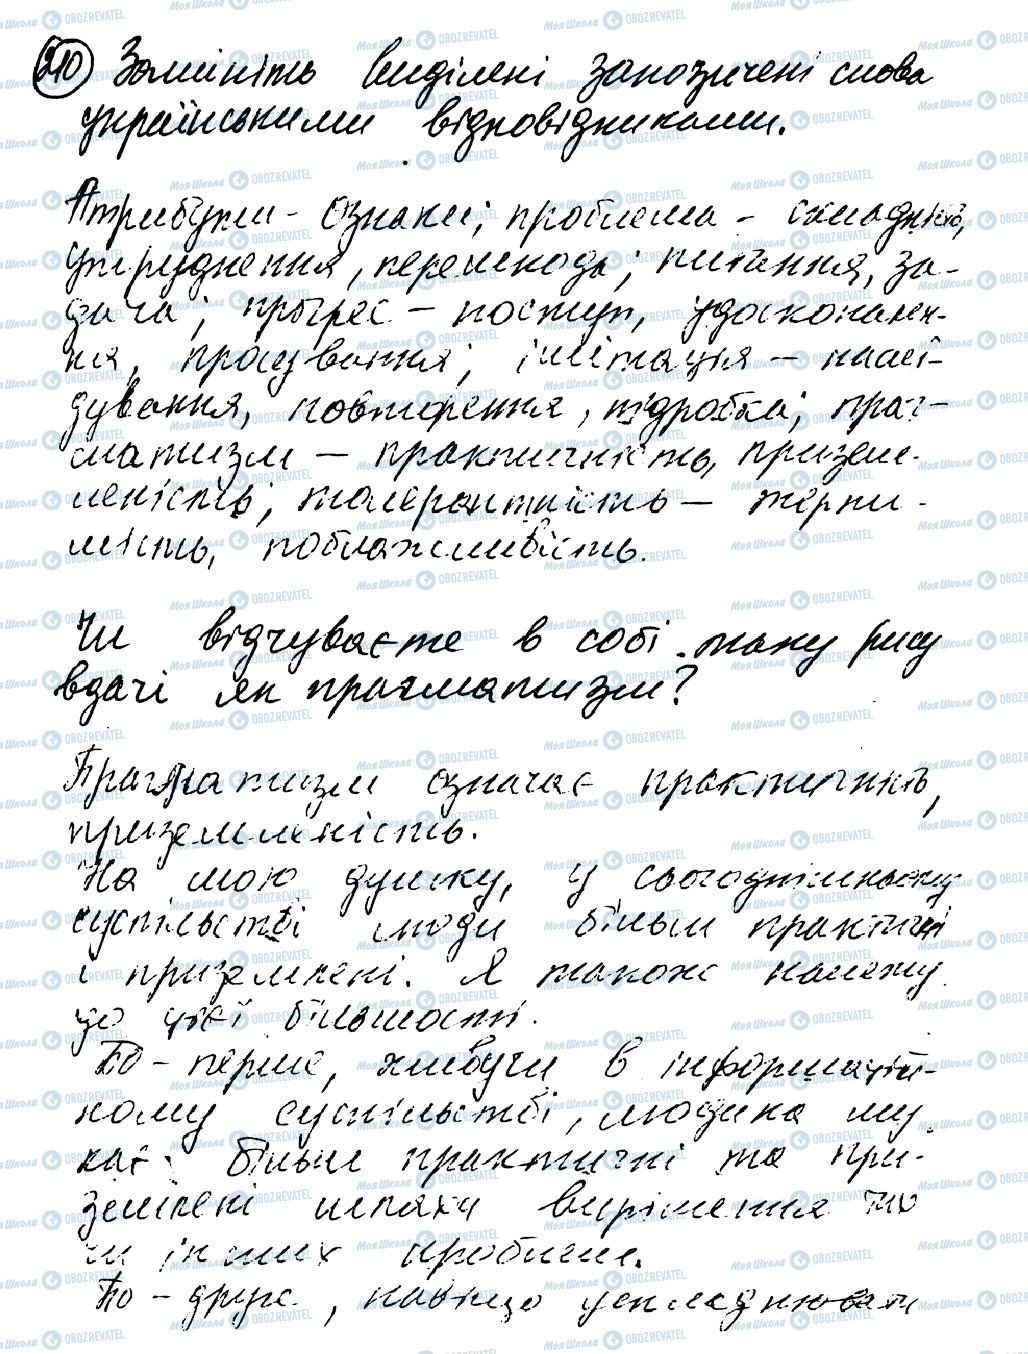 210 Замініть виділені запозичені слова
українськими відповідниками.
Атрибути - ознаки; проблема - складність,
утруднення, перешкода; питання, за-
дача; прогрес - поступ, удосконален-
ня, просування; імітація - наслі-
дування, повторення, підробка; праг-
матизм - практичність, призем-
леність; толерантність - терпи-
мість, поблажливість.
Чи відчуваєте в собі таку рису
вдачі як прагматизм?
Прагматизм означає практичність,
приземленість.
На мою думку, у сьогоднішньому
суспільстві люди більш практичні
і приземлені. Я також належу
до цієї більшості.
По-перше, живучи в інформацій-
ному суспільстві, людина шу-
кає більш практичні та при-
землені шляхи вирішення тих
чи інших проблем.
По-друге, навіщо ускладнювати